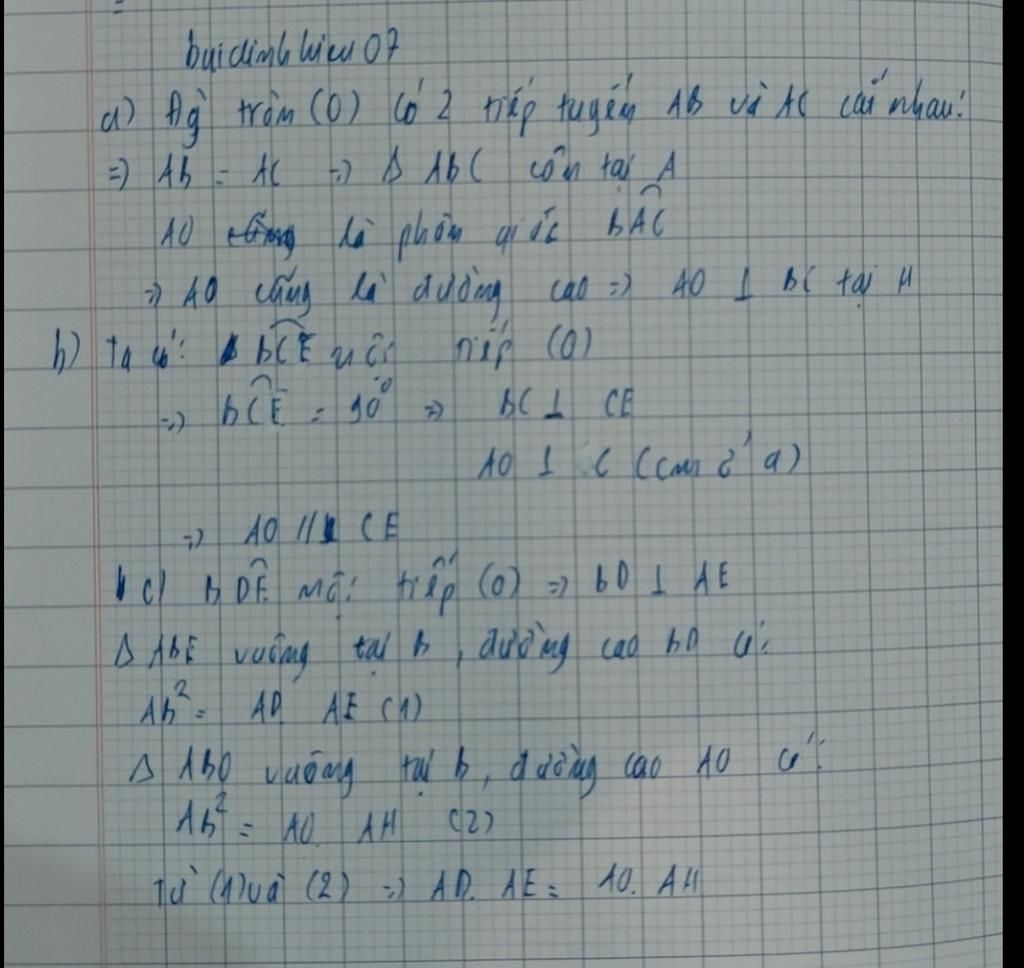 buidinhhieu07
a) Đg tròn (O) có 2 tiếp tuyến AB và AC cắt nhau:
=> AB = AC => Δ ABC cân tại A
AO là phân giác BAC
=> AO cũng là đường cao => AO ⊥ BC tại H
b) ta có: BCE nội tiếp (O)
=> BCE = 90° => BC ⊥ CE
AO ⊥ C (cm ở a)
=> AO // CE
c) BDE nội tiếp (O) => BD ⊥ AE
Δ ABE vuông tại B, đường cao BD có:
AB² = AD AE (1)
Δ ABO vuông tại B, đường cao AO có:
AB² = AO AH (2)
Từ (1) và (2) => AD. AE = AO. AH